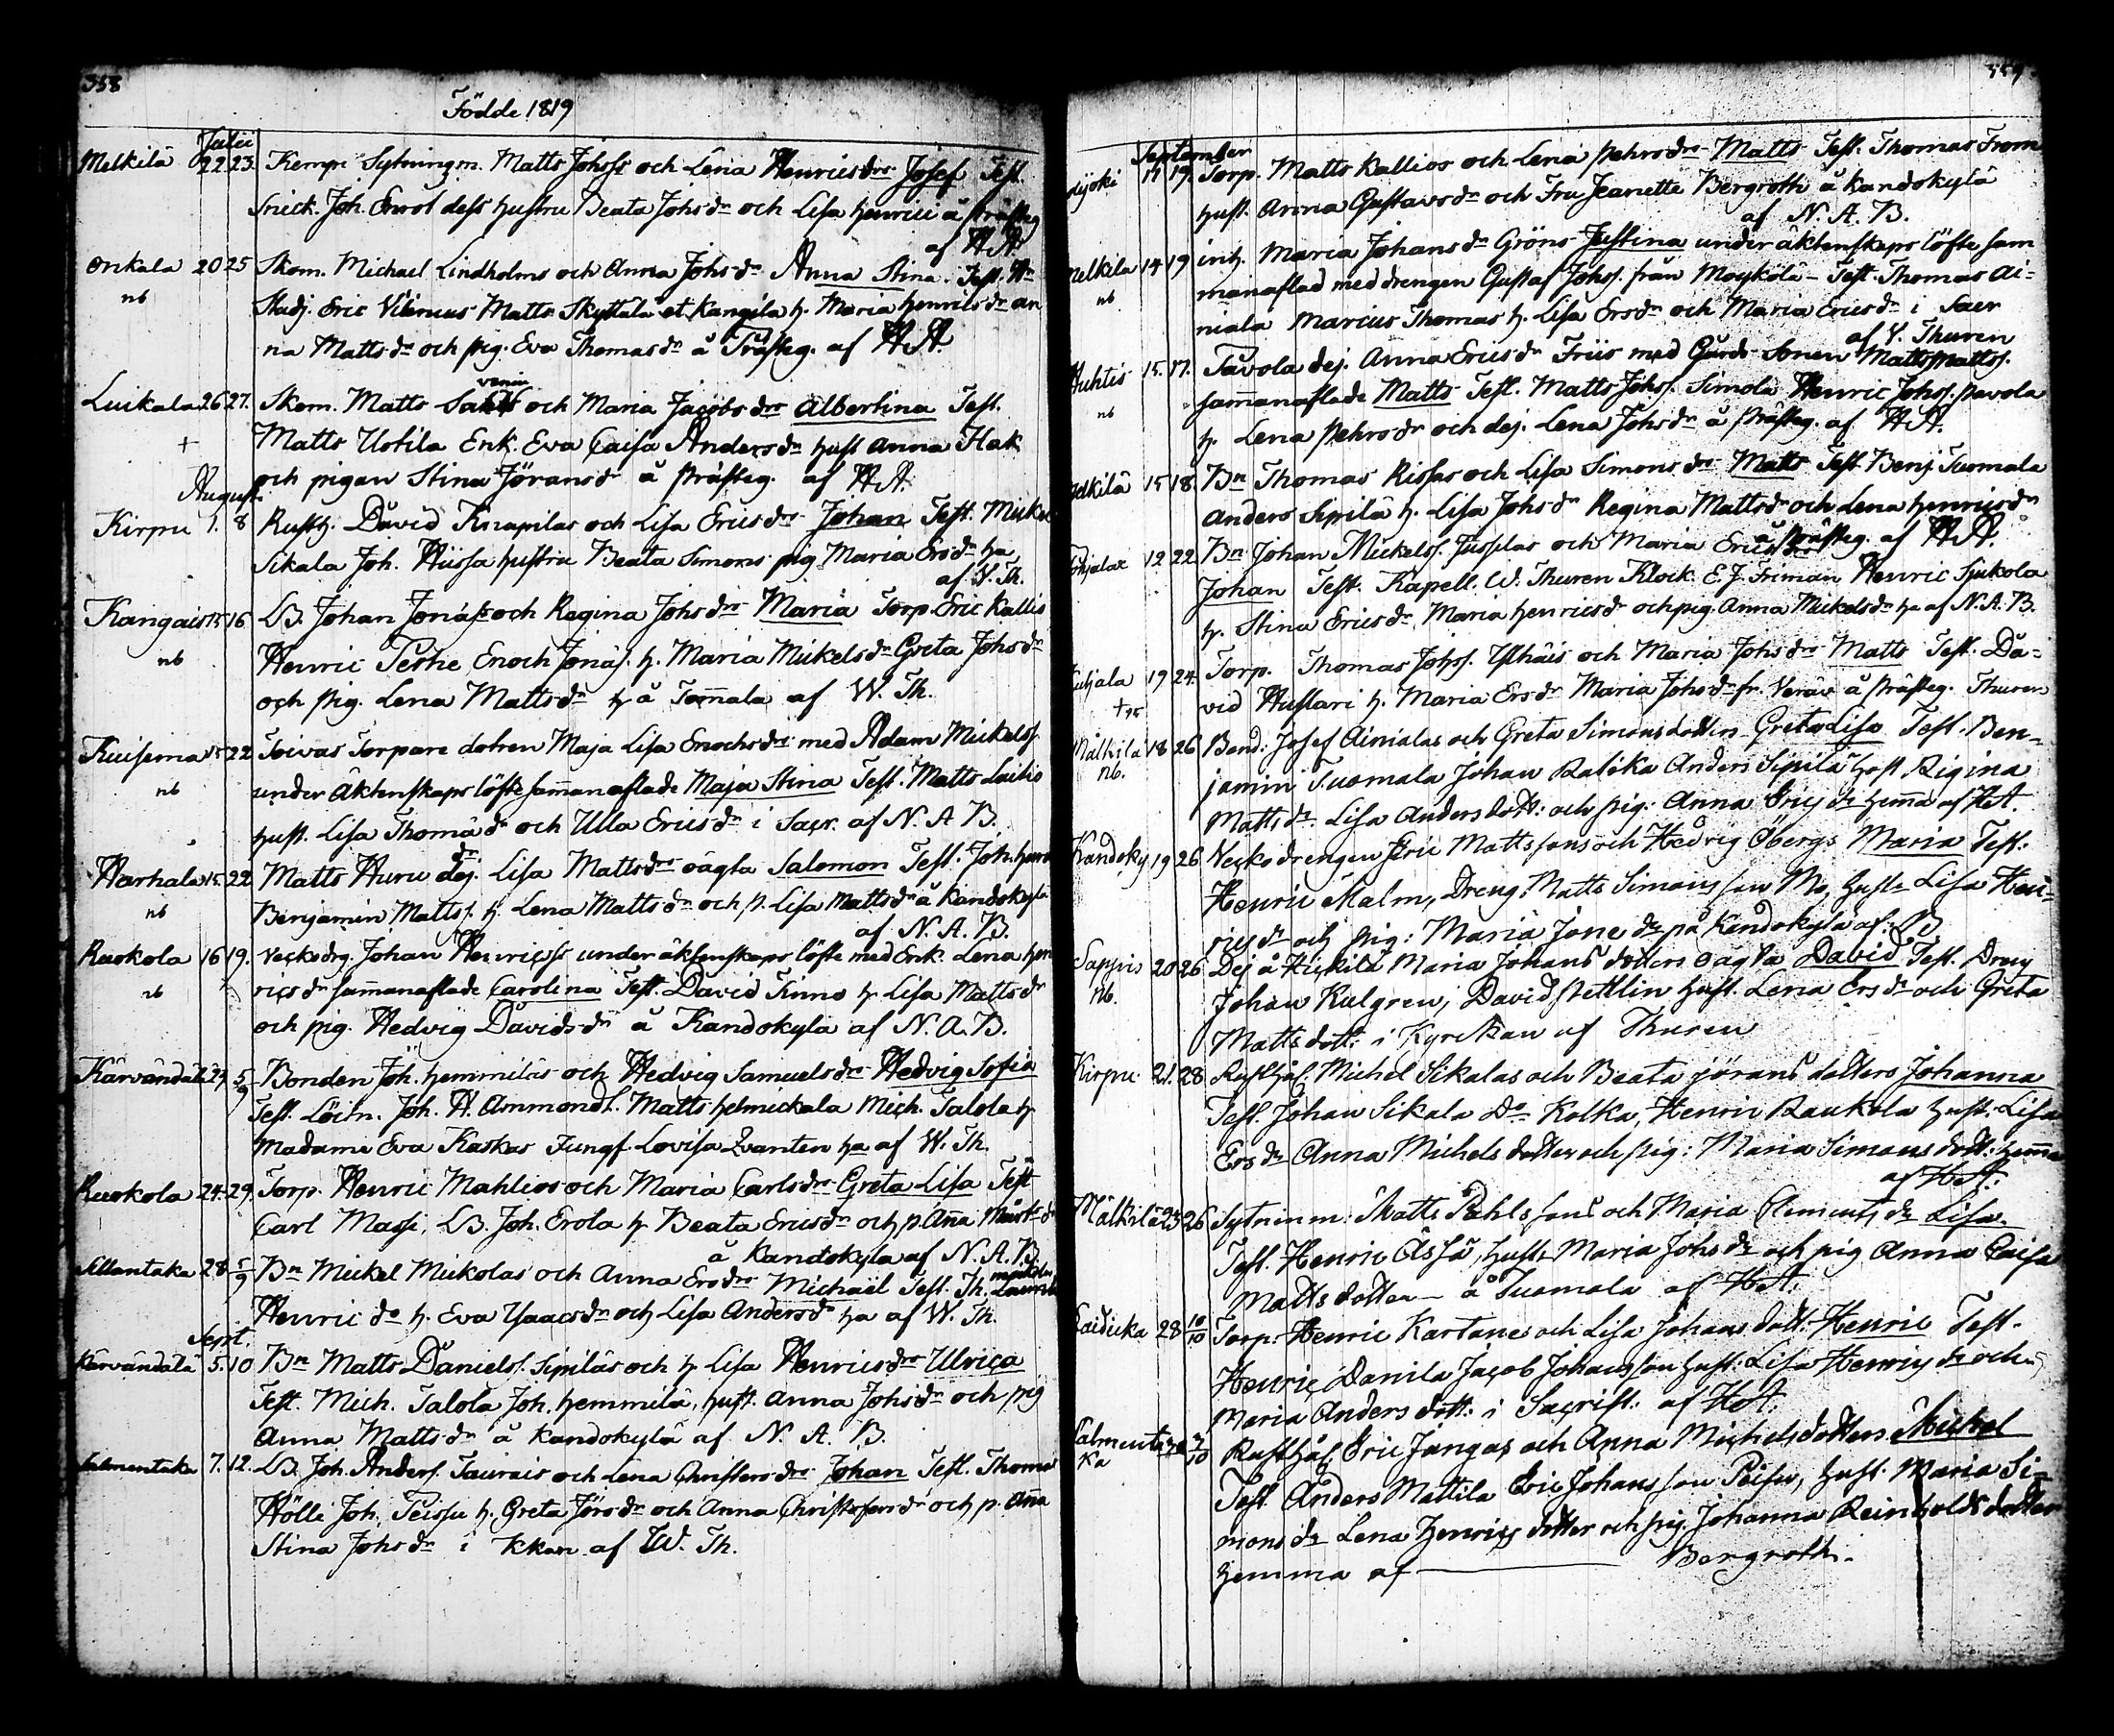 358
Födde 1819
Julii
Melkilä 22 23. Kempi Sytningm. Matts Johss och Lena Henricsdrs Josef Test.
Snick. Joh. Enrot dess hustru Beata Johsdr och Lisa Henrici å Prästeg
af HA.
Onkala 20 25 Skom. Michael Lindholms och Anna Johsdr Anna Stina. Test. Hr
nb Studj. Eric Vilenius Matts Skyttälä et Kangila h. Maria Henricsdr an
na Mattsdr och pig. Eva Thomasdr å Prästeg. af HA.
Luikala 26 27. Skom. Matts och Maria Jacobsdrs Albertina Test.
+ Matts Uotila Enk. Eva Caisa Andersdr hust Anna Flak
och pigan Stina Jöransdr å Prästeg. af HA.
Augusti
Kirpu 1. 8 Rusth. David Knapilas och Lisa Ericsdrs Johan Test. Mickel
Sikala Joh. Hüssa hustru Beata Simons pig Maria Ersdr ha
af W. Th.
Kangais 15 16 LB. Johan Jonäs och Regina Johsdrs Maria Torp. Eric Kallio
nb Henric Peske Enoch Jonäs. h. Maria Mickelsdr Greta Johsdr
och pig. Lena Mattsdr h å Tom̄ala af W. Th.
Kuisema 15 22 Toivas Torpare dotren Maja Lisa Enochsdrs med Adam Mickelss.
nb under äktenskaps löfte sam̄anaflade Maja Stina Test. Matts Laitis
hust. Lisa Thomädr och Ulla Ericsdr i Sacr. af N. A B.
Harhala 15. 22 Matts Huru dej. Lisa Mattsdrs oägta Salomon Test. Joh. Henr
nb Benjamin Mattss. h. Lena Mattsdr och p. Lisa Mattsdr å Kandokylä
af N. A. B.
Ruokola 16 19. Veckodrg. Johan Henricss under äktenskaps löfte med Enk. Lena Hen
nb ricsdr sam̄anaflade Carolina Test. David Finno h Lisa Mattsdr
och pig. Hedvig Davidsdr å Kandokyla af N. A. B.
Kärvändälä 29 5/9 Bonden Joh. Hemmiläs och Hedvig Samuelsdrs Hedvig Sofia
Test. Löitn. Joh. H. Ammondt. Matts Helmickala Mich. Talola h
Madame Eva Kaskas Jungf. Lovisa Zvanten ha af W. Th.
Ruokola 24. 29. Torp. Henric Mahlios och Maria Carlsdrs Greta Lisa Test
Carl Massi, LB. Joh. Erola h Beata Ericsdr och p. An̄a Mårtsdr
å Kandokyla af N. A. B.
Sillantaka 28 5/9 Bn Mickel Mickolas och Anna Ersdrs Michaël Test. Th.
Henric do h. Eva Ysaacsdr och Lisa Andersdr ha af W. Th.
Sept.
Kärvändälä 5. 10 Bn Matts Daniels. Sipiläs och h Lisa Henricsdrs Ulrica
Test. Mich. Talola Joh. Hemmilä, hust. Anna Johsdr och pig
Anna Mattsdr å Kandokylä af N. A. B.
Salmentaka 7. 12. LB. Joh. Anders. Taurais och Lena Christersdrs Johan Test. Thomas
Hölli Joh. Teissu h. Greta Jörsdr och Anna Christofersdr och p. An̄a
Stina Johsdr i Kkan af W. Th.
359
September
11 19. Torp. Matts Kallios och Lena Pehrsdrs Matts Test. Thomas From
hust. Anna Gustavsdr och Fru Jeanette Bergroth å Kandokylä
af N. A. B.
Melkila 14 19 inh. Maria Johansdr Gröns Justina under äktenskaps löfte sam
nb manaflad med drengen Gustaf Johss. från Moykölä - Test. Thomas Ai-
niala Marcus Thomas h. Lisa Ersdr och Maria Ericsdr i Sacr
af V. Thuren
Huhtis 15. 17. Tavola dej. Anna Ericsdr Friis med Gårds Sonen Matts Mattss.
nb sam̄anaflade Matts Test. Matts Johss. Simola Henric Johss. Pavola
h. Lena Pehrsdr och dej. Lena Johsdr å Prästeg. af HA.
Melkilä 15 18. Bn Thomas Rissas och Lisa Simonsdrs Matts Test Benj Tuomala
Anders Sipilä h. Lisa Johsdr Regina Mattsdr och Lena Henricsdr
å Prästeg. af HA.
12 22. Bn Johan Mickelss. Jusslas och Maria Ericsdrs
Johan Test. Kapell. W. Thuren Klock. E. J. Friman Henric Sjukola
h. Stina Ericsdr, Maria Henricsdr och pig. Anna Mickelsdr ha af N. A. B.
19 24. Torp. Thomas Johss. Ylhäis och Maria Johsdrs Matts Test. Da-
vid Hustari h. Maria Ersdr Maria Johsdr fr. Veräv å Prästeg. Thuren
Mälkila 18 26 Bond: Josef Ainialas och Greta Simonsdotters Greta Lisa Test. Ben-
nb. jamin Tuomala Johan Ratika Anders Sipilä hust Rigina
Mattsdr Lisa Andersdott: och pig: Anna Ericsdr hem̄a af HA.
Kandoky 19 26 Vecko drengen Eric Mattssons och Hedvig Öbergs Maria Test:
Henric Malm, Dreng: Matts Simonsson Mo, hust. Lisa Hen-
ricsdr och pig: Maria Jonedr på Kandokylä af: B
Sappis 20 26 Dej å Hickilä Maria Johans dotters oägta David Test. Dreng
nb. Johan Kulgren, David Stettlin hust. Lena Ersdr och Greta
Mattsdott: i Kyrckan af Thuren
Kirpu 21. 28 Rusthål: Michel Sikalas och Beata Jörans dotters Johanna
Test. Johan Sikala Do Kolka, Henric Raukola hust. Lisa
Ersdr Anna Michels dotter och pig: Maria Simons dott: hem̄a
af HA.
Mälkilä 23 26 Sytninm: Matts Pahlssons och Maria Clementsdr Lisa.
Test. Henric Ässä, hust. Maria Johsdr och pig Anna Caisa
Mattsdotter - å Tuomala af HA.
28 10/10 Torp. Henric Kartanes och Lisa Johans dott: Henric Test.
Henric Danila Jacob Johansson hust: Lisa Henricsdr och
Maria Andersdott: i Sacrist: af HA.
Salmenta ka 7/10 Rusthål: Eric Jungas och Anna Michelsdotters Mickel
Test. Anders Mattila Eric Johansson Peisu, hust. Maria Si-
monsdr Lena Henricsdotter och pig Johanna Reinholdsdotter
hemma af — Bergroth.